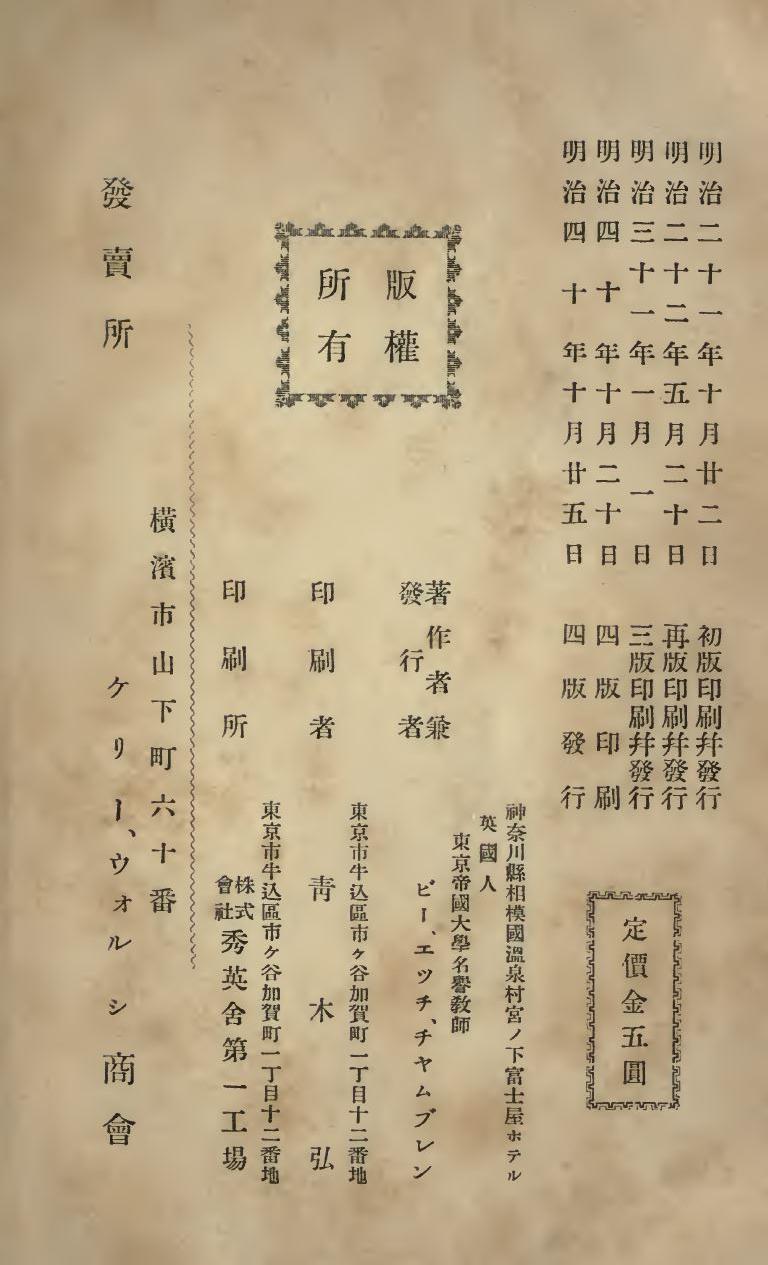 明治二十一年十月廿二日 初版印刷幷發行
明治二十二年五月二十日 再版印刷幷發行
明治三十一年一月一日 三版印刷幷發行
明治四十年十月二十日 四版印刷
明治四十年十月廿五日 四版發行
定價金五圓
版權
所有
神奈川縣相模國溫泉村宮ノ下富士屋ホテル
英國人
東京帝國大學名譽教師
著作者兼
發行者
ビー、エツチ、チヤムブレン
東京市牛込區市ケ谷加賀町一丁目十二番地
印刷者 靑木弘
東京市牛込區市ケ谷加賀町一丁目十二番地
印刷所 株式會社秀英舍第一工場
橫濱市山下町六十番
發賣所 ケリー、ウォルシ商會